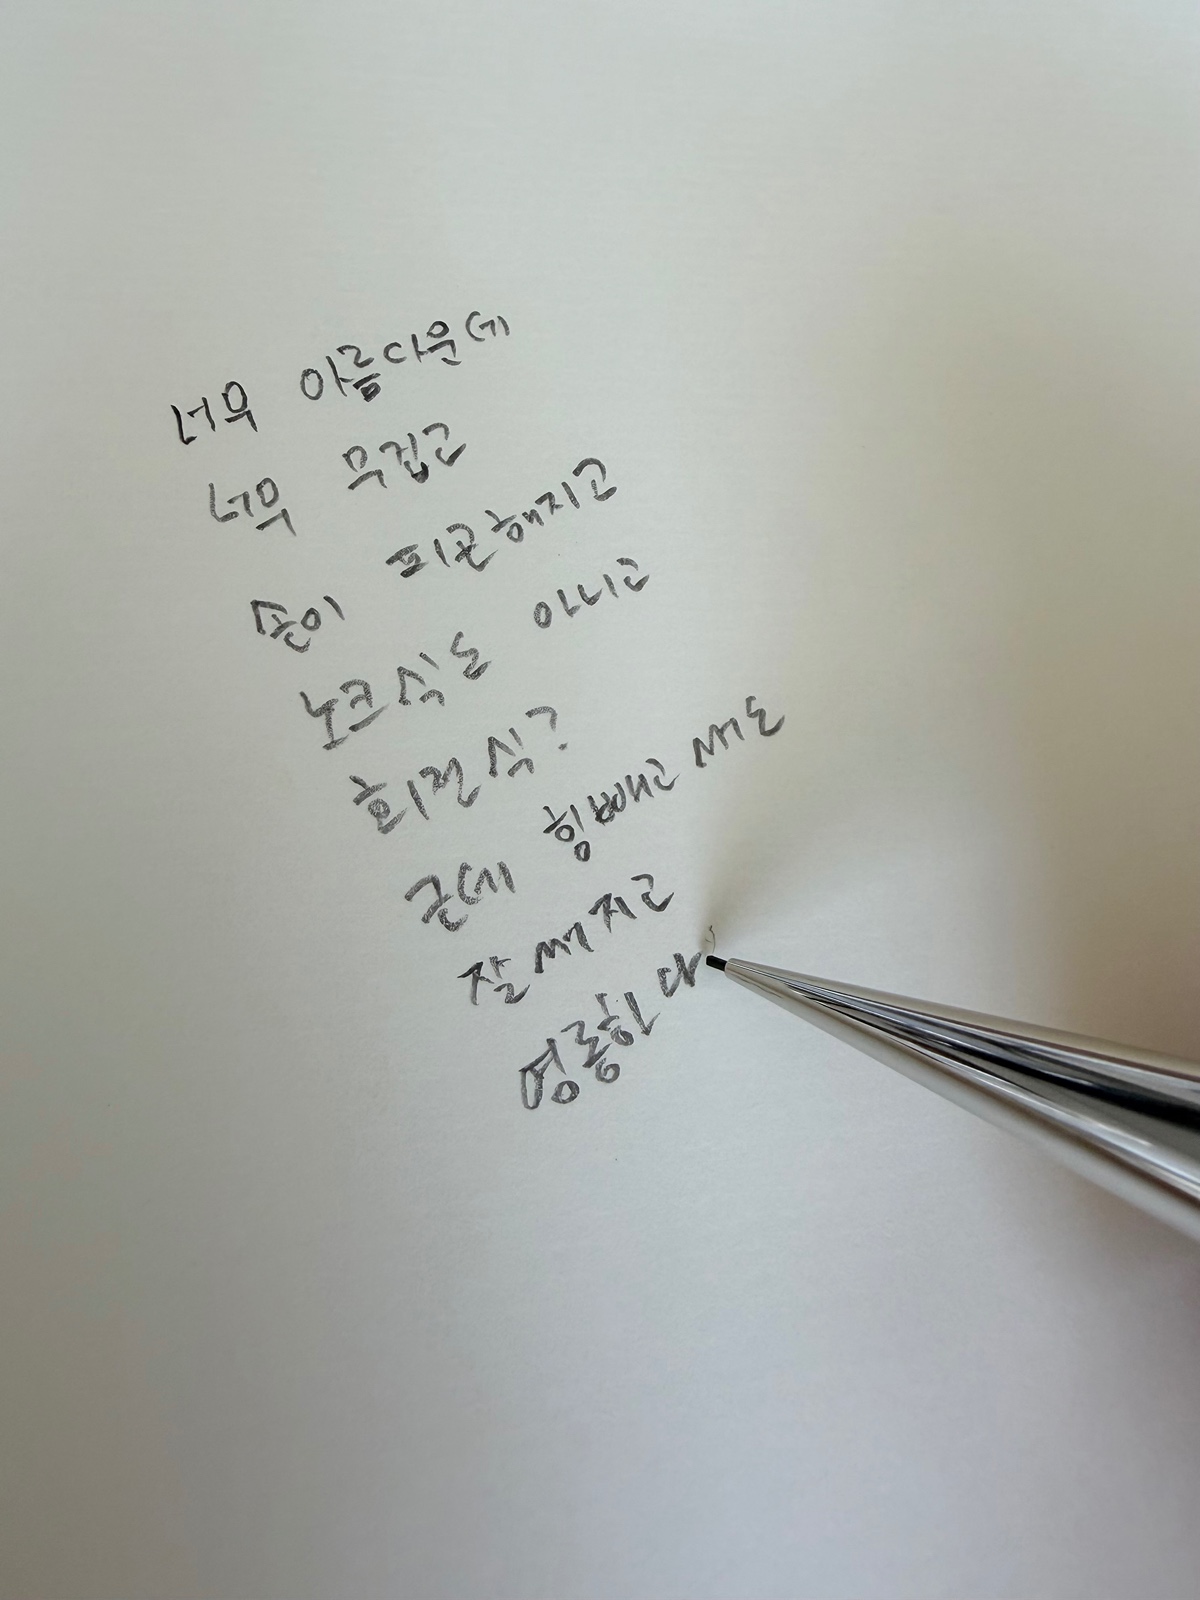 너무 아름다운데
너무 무겁고
손이 피곤해지고
노크식도 아니고
회전식?
근데 힘빼고 써도
잘 써지고
영롱하다